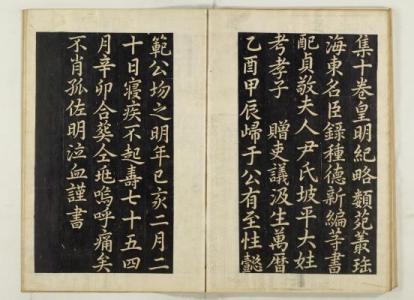 集十卷皇明紀略類苑叢珤
海東名臣錄種德新編等書
配貞敬夫人尹氏坡平大姓
考孝子　贈吏議汲生萬曆
乙酉甲辰歸于公有至性懿
範公坳之明年已亥二月二
十日寢疾不起壽七十五四
月辛卯合葬仝兆嗚呼痛矣
不肖孤佐明泣血謹書